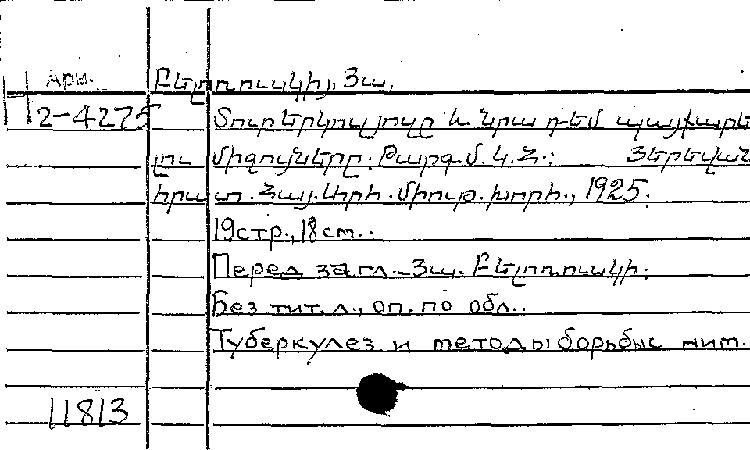 Арм.
Բելոռուսկի, Յա.
Н2-4275
Տուբերկուլյոզը և նրա դեմ պայքարե
լու միջոցները. Թարգմ. Կ. Հ.; Յերեվան
հրատ. Հայ. կոխ. միութ. խորհ., 1925.
19стр., 18см..
Перед загл. – Յա. Բելոռուսկի.
Без тит. л., оп. по обл..
Туберкулез и методы борьбы с ним.
11813